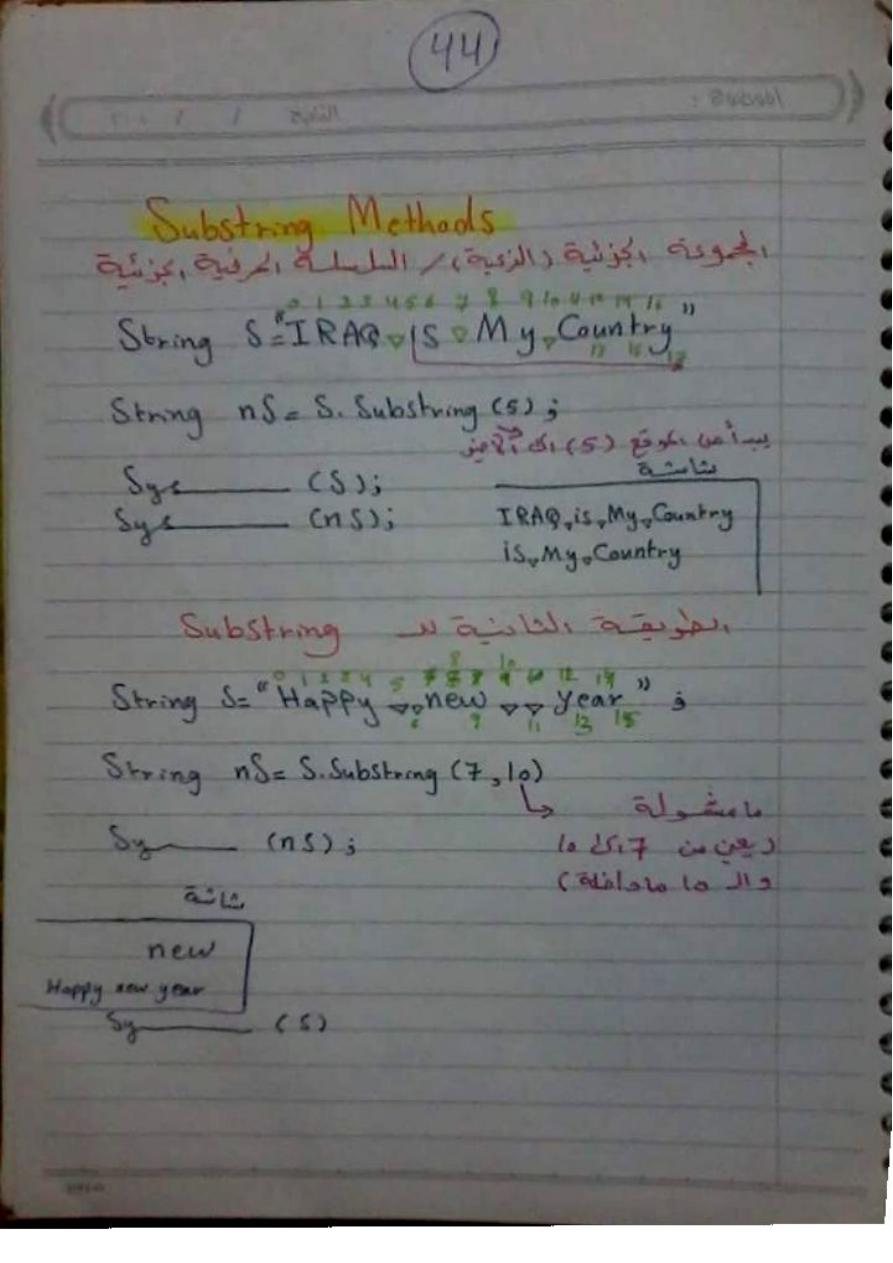 44
الموضوع :
التاريخ / / ٢٠
Substring Methods
المجموعة الجزئية (الزعبة) / السلسلة الحرفية الجزئية
0 1 2 3 4 5 6 7 8 9 10 11
String S="IRAQ▽is▽My▽Country"
String nS= S.Substring (5);
يبدأ من الموقع (5) الى الأخير
Sys——— (S);
شاشة
Sys——— (nS);
IRAQ▽is▽My▽Country
is▽My▽Country
الطريقة الثانية لل Substring
0 1 2 3 4 5
String S="Happy▽▽new▽▽year";
6 9 11 13 15
String nS= S.Substring (7,10)
مامشمولة
Sy——— (nS);
(يعني من 7 الى 10
وال 10 ما داخلة)
شاشة
new
Happy new year
Sy——— (S)